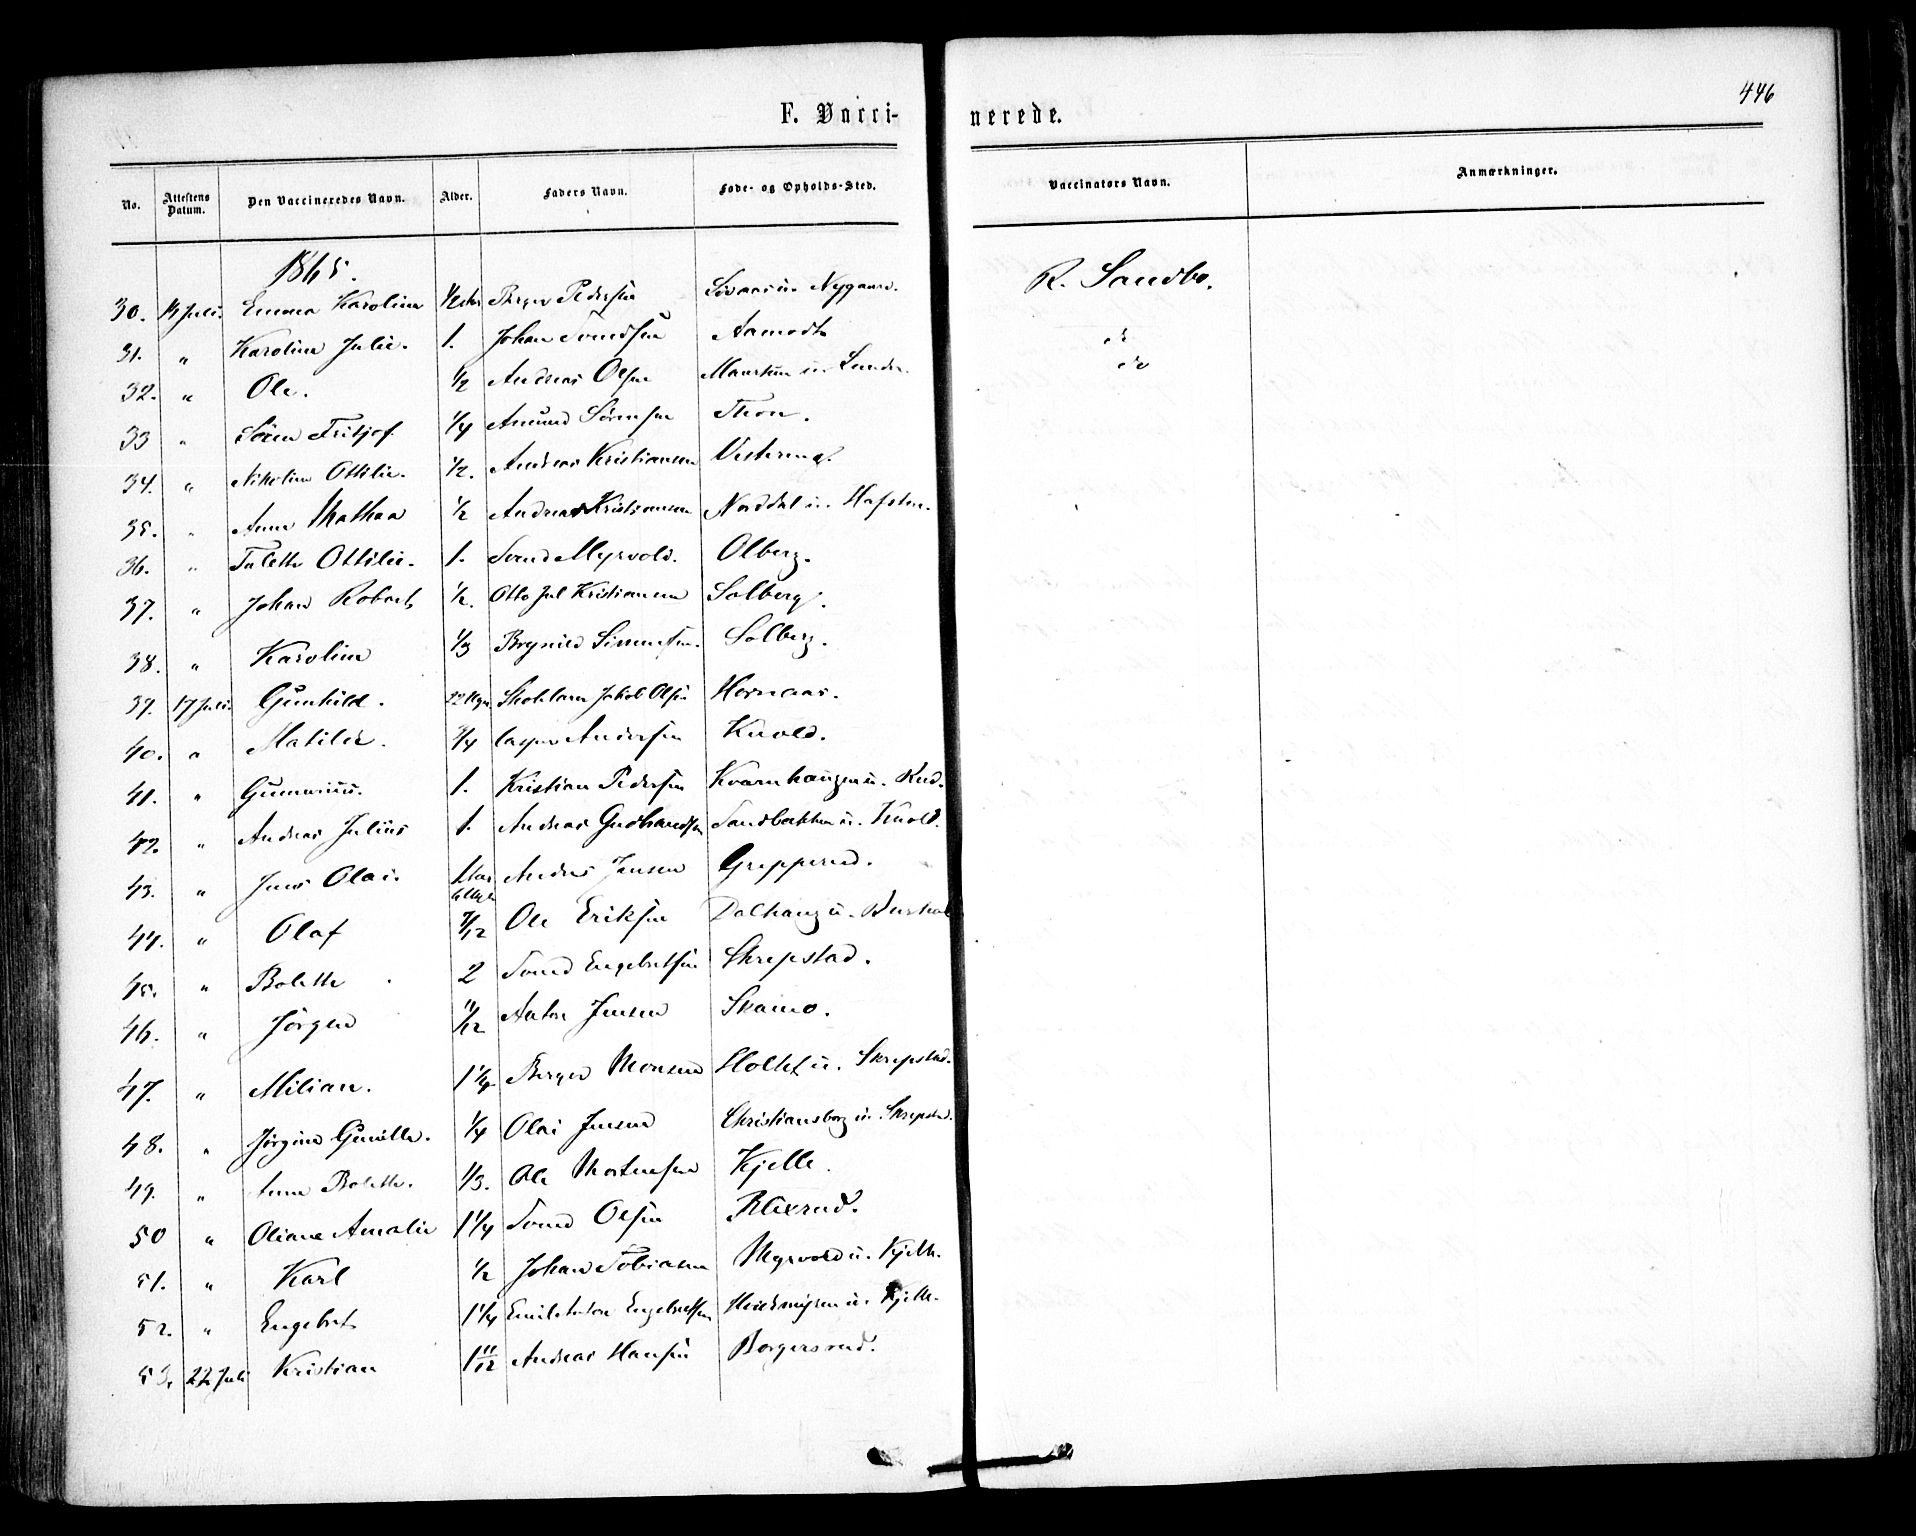 446
F. Vacci- nerede.
No. Attestens Datum. Den Vaccineredes Navn. Alder. Faders Navn. Føde- og Opholds-Sted. Vaccinators Navn. Anmærkninger.
1865. R. Sandbo.
30. Juli. Emma Karoline Pedersen Nygaard.
31. " Karoline Julie. 1. Johan Svendsen Aamodt
32. " Ole. 1/2 Andreas Olsen
33 " Sören Fritjof 1/4 Amund Sörensen Thon.
34. " Nikoline Ottilie. 1/2. Andreas Kristiansen
35. " Anne Mathea 1/2 Andreas Kristiansen Norddal u. Hafsten.
36. " Ottilie. 1. Svend Myrvold. Olberg.
37. " Johan Robert 1/2. Otto Jul Kristiansen Solberg.
38. " Karoline 1/3 Simensen. Solberg.
39. 17 Juli. Gunhild. Jakob Olsen
40. " Matilde. 3/4 Casper Andersen Knold.
41. " Gunarius. 1. Kristian Pedersen Kvernhaugen u. Rud.
42. " Andreas Julius 1. Andreas Gudbrandsen Sandbakken u. Knold.
43. " Jens Olai. Andreas Jensen Gripperud.
44. " Olaf 7/12 Ole Eriksen Dalhaug u.
45. " Bolette 2 Svend Engebretsen Skrepstad.
46. " Jörgen 11/12 Anton Jensen
47. " Milian. 1 1/4 Berger Monsen Holtet u. Skrepstad.
48. " Jörgine Gunille. 1/4 Olai Jensen Christiansborg u. Skrepstad.
49. " Anne Bolette. 1/3. Ole Mortensen Kjelle.
50 " Oliane Amalie 1 1/4 Svend Olsen Blixrud.
51. " Karl 1/2 Johan Tobiasen Myrvold u. Kjelle.
52. " Engebret 1 1/4 Emil Anton Engebretsen u. Kjelle.
53. 22 Juli Kristian 1 11/12 Andreas Hansen Borgersrud.